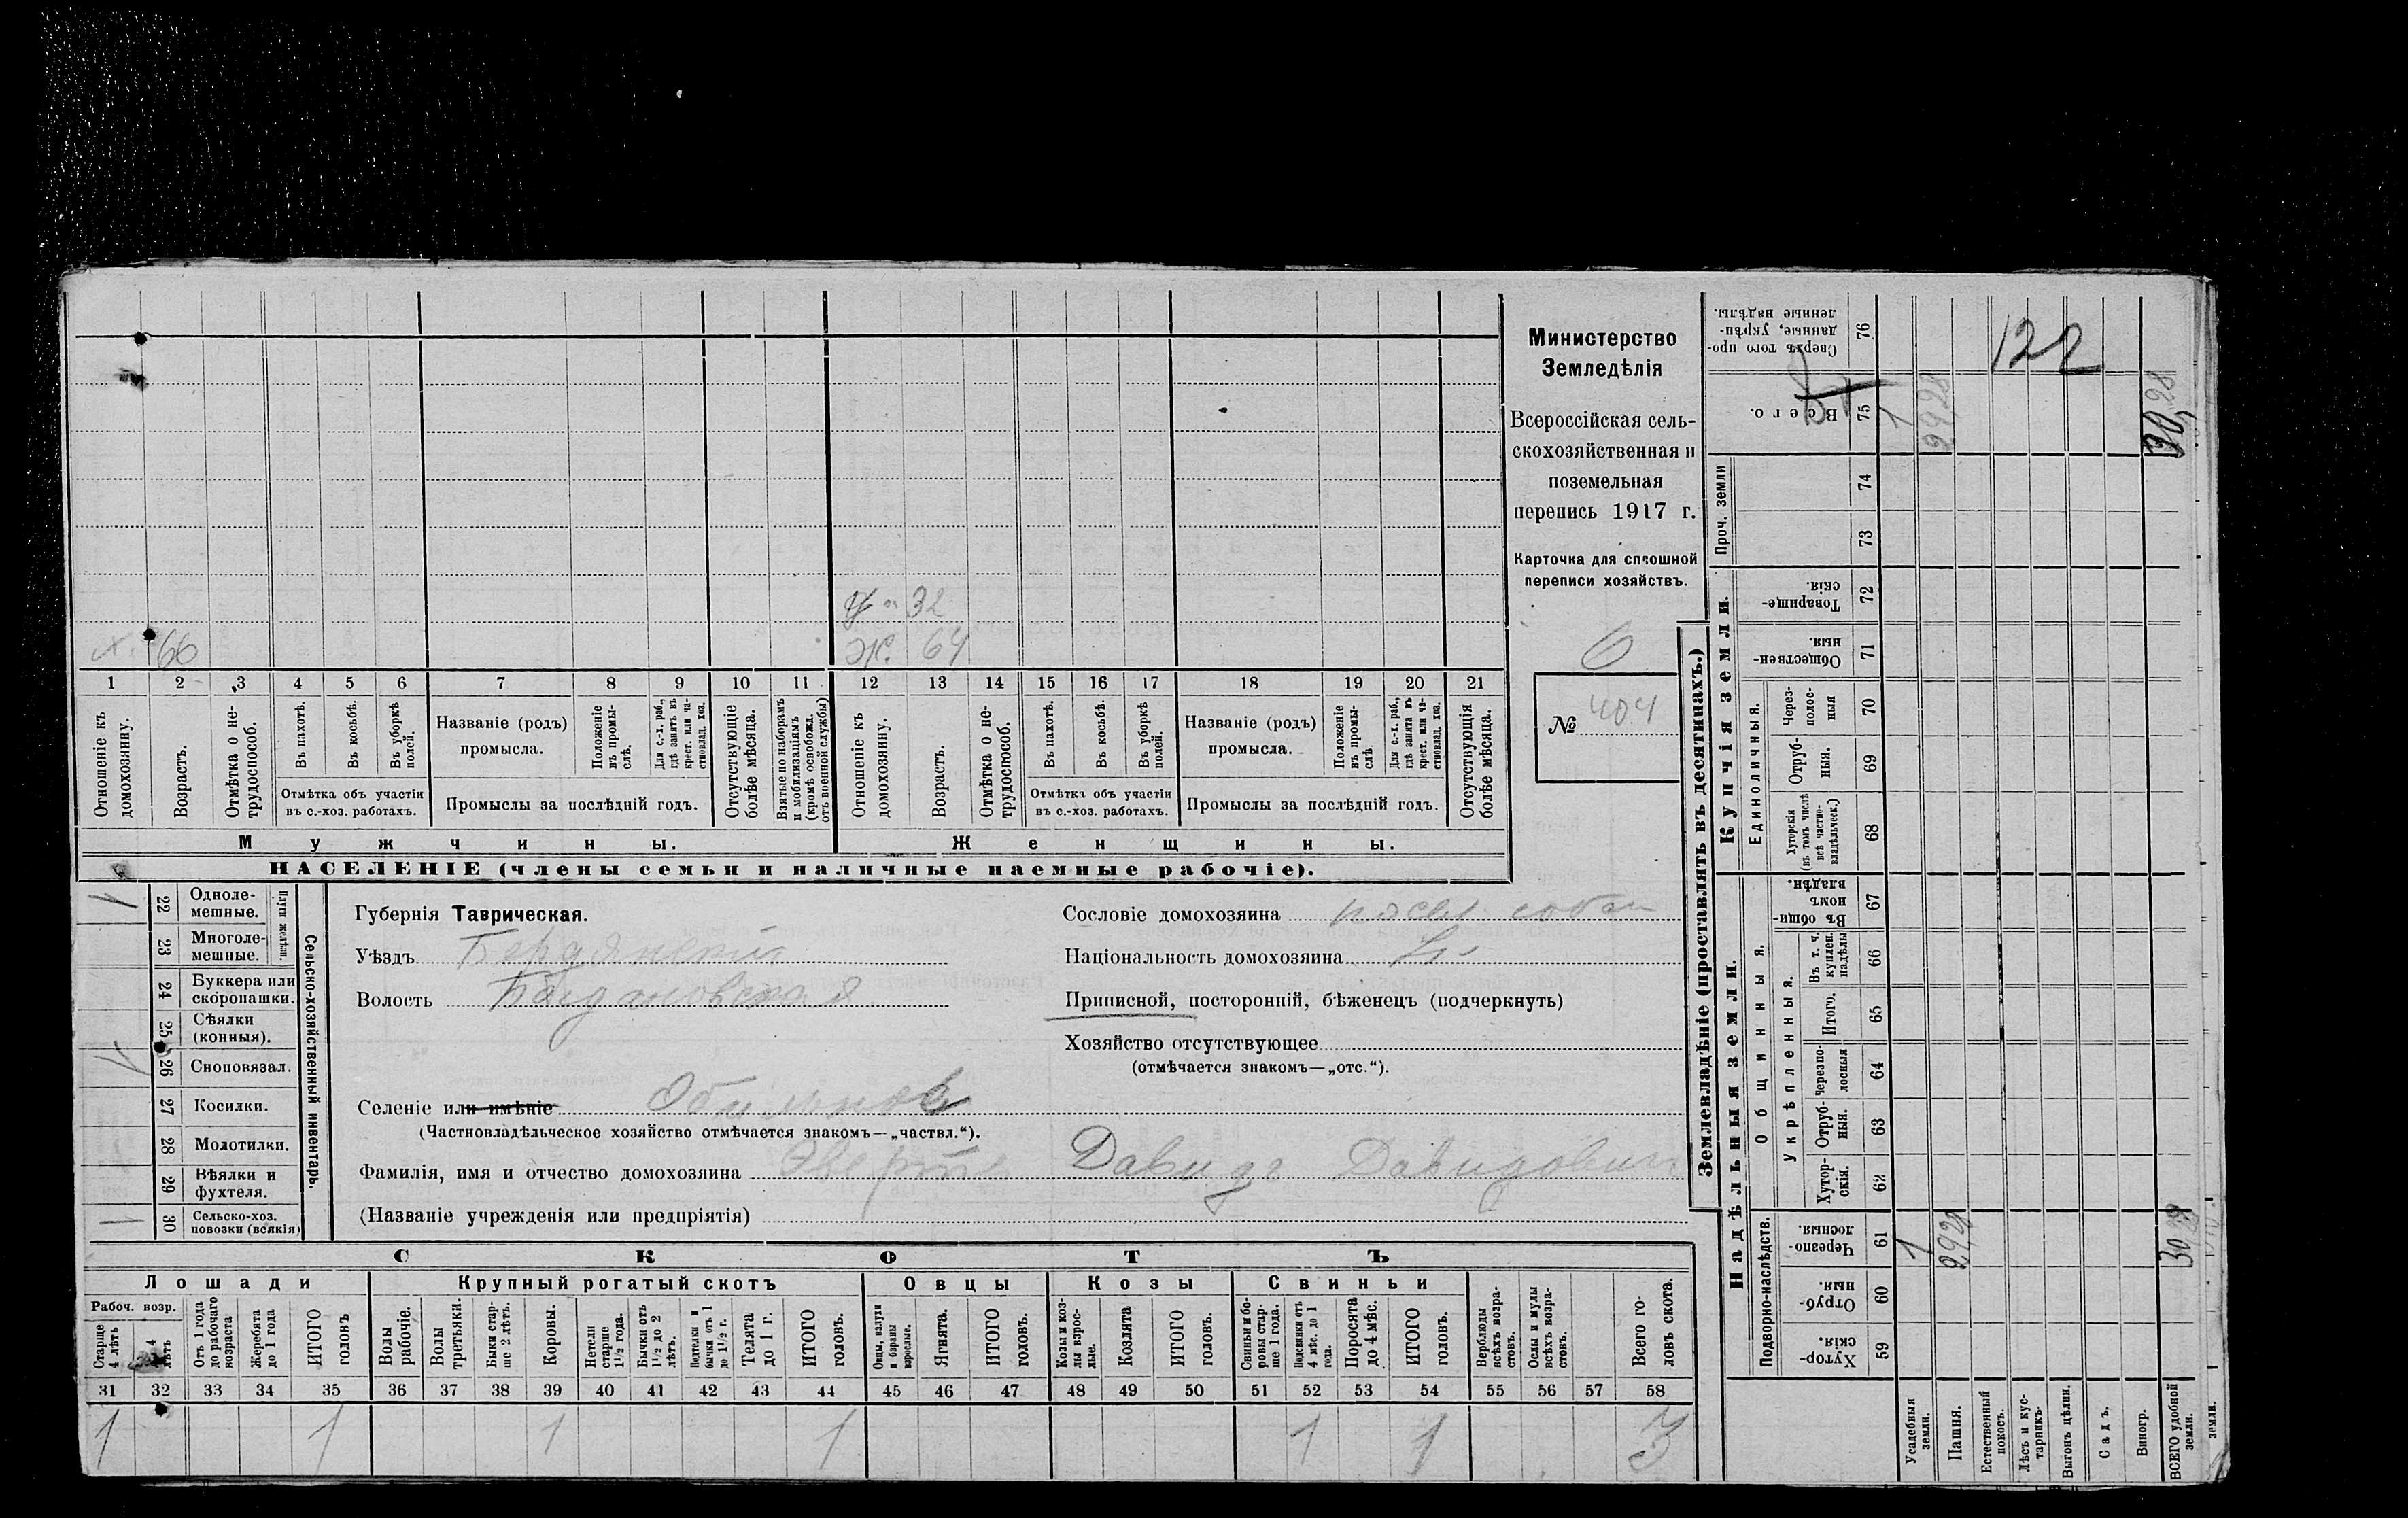 Министерство
Земледѣлія
Всероссійская сель-
скохозяйственная и
поземельная
перепись 1917 г.
Карточка для сплошной
переписи хозяйствъ.
6
№ 404
У 32
х. 66
Ж. 64
1 2 3 4 5 6 7 8 9 10 11 12 13 14 15 16 17 18 19 20 21
Отношеніе къ домохозяину.
Возрастъ.
Отмѣтка о не-трудоспособ.
Въ пахотѣ.
Въ косьбѣ.
Въ уборкѣ полей.
Отмѣтка объ участіи
въ с.-хоз. работахъ.
Названіе (родъ)
промысла.
Положеніе въ промы-слѣ.
Для с.-х. раб., гдѣ занятъ въ крест. или ча-стновлад. хоз.
Промыслы за послѣдній годъ.
Отсутствующіе болѣе мѣсяца.
Взятые по наборамъ и мобилизаціямъ (кромѣ освобожд. отъ военной службы)
Отношеніе къ домохозяину.
Возрастъ.
Отмѣтка о не-трудоспособ.
Въ пахотѣ.
Въ косьбѣ.
Въ уборкѣ полей.
Отмѣтка объ участіи
въ с.-хоз. работахъ.
Названіе (родъ)
промысла.
Положеніе въ промы-слѣ
Для с.-х. раб., гдѣ занята въ крест. или ча-стновлад. хоз.
Промыслы за послѣдній годъ.
Отсутствующія болѣе мѣсяца.
Мужчины.
Женщины.
НАСЕЛЕНІЕ (члены семьи и наличные наемные рабочіе).
1 22 Одноле-мешные.
23 Многоле-мешные.
Плуги желѣзн.
24 Буккера или скоропашки.
25 Сѣялки (конныя).
26 Сноповязал.
27 Косилки.
28 Молотилки.
29 Вѣялки и фухтеля.
1 30 Сельско-хоз. повозки (всякія)
Сельско-хозяйственный инвентарь.
Губернія Таврическая.
Уѣздъ Бердянскій
Волость Богдановская
Селеніе или имѣніе
(Частновладѣльческое хозяйство отмѣчается знакомъ—„частвл.“).
Фамилія, имя и отчество домохозяина Эверт Давидъ Давидович
(Названіе учрежденія или предпріятія)
Сословіе домохозяина посел. собст
Національность домохозяина
Приписной, посторонній, бѣженецъ (подчеркнуть)
Хозяйство отсутствующее
(отмѣчается знакомъ—„отс.“).
СКОТЪ
Лошади
Крупный рогатый скотъ
Овцы
Козы
Свиньи
Рабоч. возр.
Старше 4 лѣтъ
4 лѣтъ
Отъ 1 года до рабочаго возраста
Жеребята до 1 года
ИТОГО головъ
Волы рабочіе.
Волы третьяки.
Быки стар-ше 2 лѣтъ.
Коровы.
Нетели старше 1½ года.
Бычки отъ 1½ до 2 лѣтъ.
Нетелки и бычки отъ 1 до 1½ г.
Телята до 1 г.
ИТОГО головъ.
Овцы, валухи и бараны взрослые.
Ягнята.
ИТОГО головъ.
Козы и коз-лы взрос-лые.
Козлята
ИТОГО головъ.
Свиньи и бо-ровы стар-ше 1 года.
Подсвинки отъ 4 мѣс. до 1 года.
Поросята до 4 мѣс.
ИТОГО головъ.
Верблюды всѣхъ возра-стовъ.
Ослы и мулы всѣхъ возра-стовъ.
Всего го-ловъ скота.
31 32 33 34 35 36 37 38 39 40 41 42 43 44 45 46 47 48 49 50 51 52 53 54 55 56 57 58
1 1 1 1 1 1 3
Землевладѣніе (проставлять въ десятинахъ.)
Купчія земли.
Надѣльныя земли.
Сверхъ того про-данные, укрѣп-ленные надѣлы. 76
122
Всего. 75
1
29,28
30,28
Проч. земли
74
73
Товарище-скія. 72
Обществен-ныя. 71
Единоличныя.
Через-полос-ныя 70
Отруб-ныя. 69
Хуторскія (въ томъ числѣ всѣ частно-владѣльческ.) 68
Общинныя.
Въ общи-нномъ владѣн. 67
Укрѣпленныя.
Въ т. ч. куплен. надѣлы 66
Итого. 65
Черезпо-лосныя 64
Отруб-ныя. 63
Хутор-скія. 62
Подворно-наслѣдств.
Черезпо-лосныя. 61
1
29,28
30,28
Отруб-ныя. 60
Хутор-скія. 59
Усадебныя земли.
Пашня.
Естественный покосъ.
Лѣсъ и кус-тарникъ.
Выгонъ цѣлин.
Садъ.
Виногр.
ВСЕГО удобной земли.
земли.